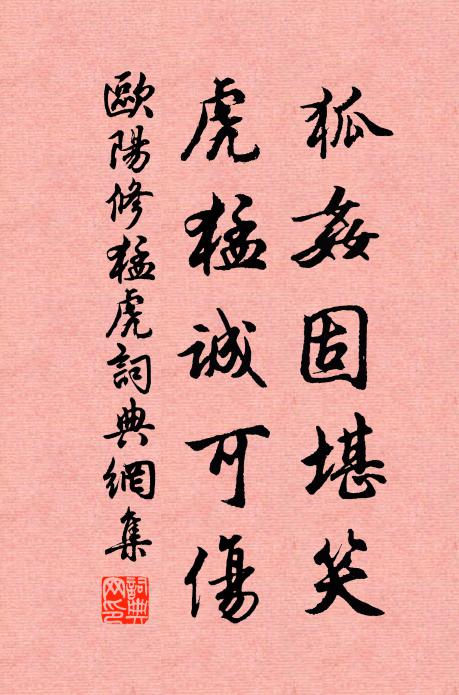 狐姦固堪笑
虎猛誠可傷
歐陽修猛虎詞典網集
詞典網印